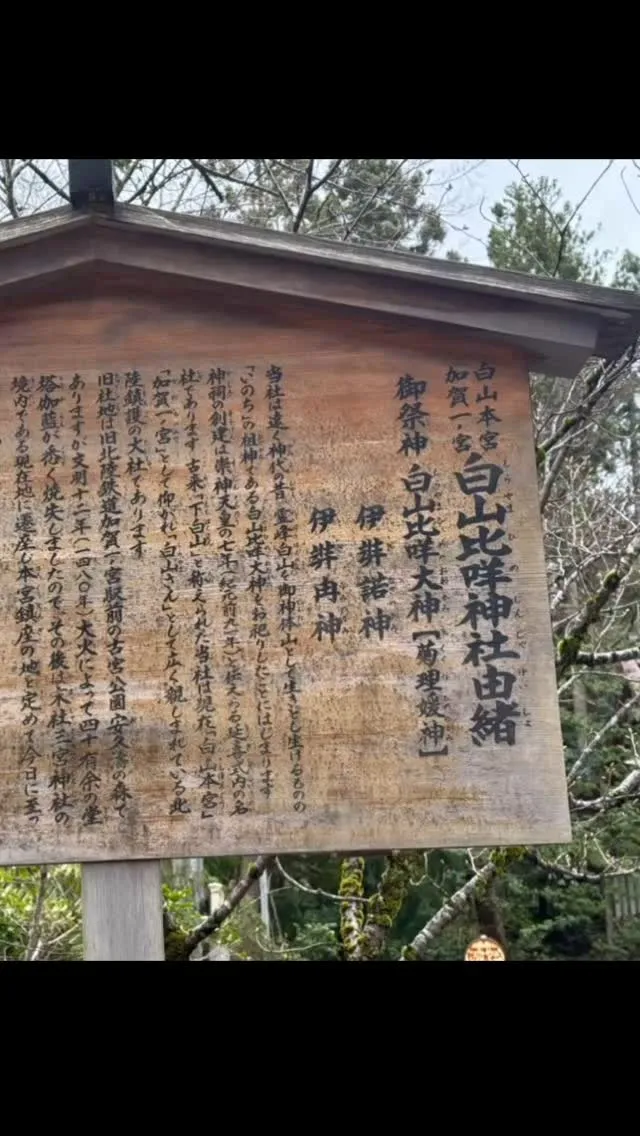 白山本宮
加賀一ノ宮
白山比咩神社由緒
御祭神 白山比咩大神【菊理媛神】
伊弉諾神
伊弉冉神
当社は遠く神代の昔、霊峰白山を御神体山として生きとし生けるものの
「いのち」の祖神である白山比咩大神をお祀りしたことにはじまります
神祠の創建は崇神天皇の七年(紀元前九一年)と伝えられる延喜式内の名
社であります 古来「下白山」と称えられた当社は現在「白山本宮」
「加賀一ノ宮」として仰がれ「白山さん」として広く親しまれている北
陸鎮護の大社であります
旧社地は旧北陸鉄道加賀一ノ宮駅前の古宮公園・安久濤の森で
ありますが文明十二年(一四八〇年)大火によって四十有余の堂
塔伽藍が悉く焼失しましたので、その後は末社三宮神社の
境内である現在地に遷座し本宮鎮座の地と定めて今日に至っ